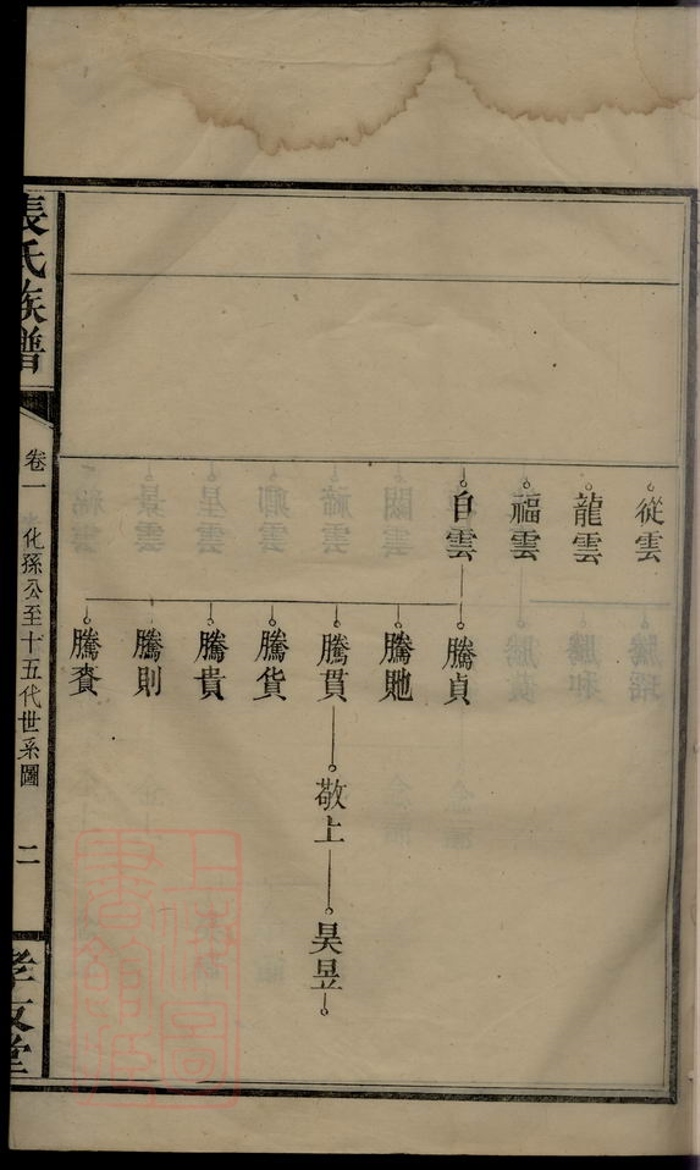 從雲
龍雲
福雲
自雲
騰貞
騰貤
騰貫
敬上
昊昱
騰貨
騰貴
騰則
騰賚
張氏族譜
卷一
化孫公至十五代世系圖
二
孝友堂
上海圖書館藏